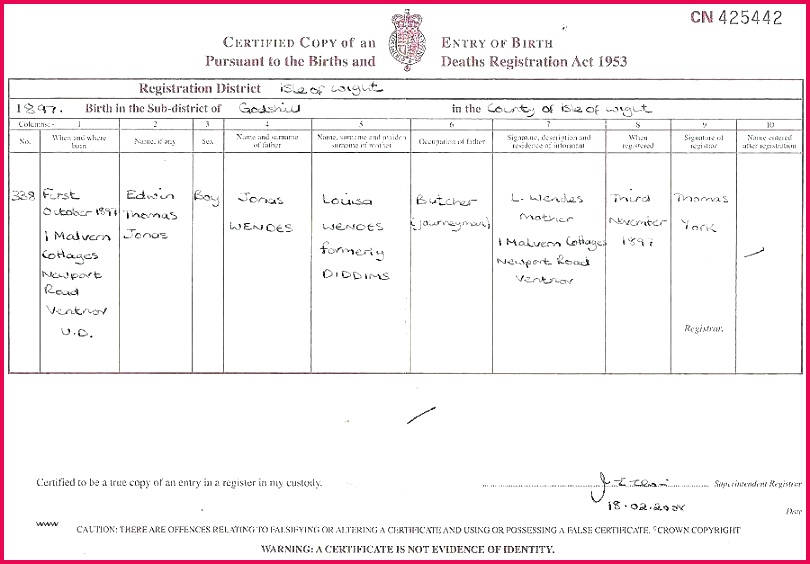 CN 425442
CERTIFIED COPY OF AN ENTRY OF BIRTH
Pursuant to the Births and Deaths Registration Act 1953
Registration District Isle of Wight
1897. Birth in the Sub-district of Godshill in the County of Isle of Wight
Columns:- 1 2 3 4 5 6 7 8 9 10
No.
When and where
born
Name, if any
Sex
Name and surname
of father
Name, surname and maiden
surname of mother
Occupation of father
Signature, description and
residence of informant
When
registered
Signature of
registrar
Name entered
after registration
338
First
October 1897
1 Malvern
Cottages
Newport
Road
Ventnor
U.D.
Edwin
Thomas
Jonas
Boy
Jonas
WENDES
Louisa
WENDES
formerly
DIDDIMS
Butcher
(Journeyman)
L. Wendes
Mother
1 Malvern Cottages
Newport Road
Ventnor
Third
November
1897
Thomas
York
Registrar.
Certified to be a true copy of an entry in a register in my custody.
Superintendent Registrar
18.02.
Date
CAUTION: THERE ARE OFFENCES RELATING TO FALSIFYING OR ALTERING A CERTIFICATE AND USING OR POSSESSING A FALSE CERTIFICATE. ©CROWN COPYRIGHT
WARNING: A CERTIFICATE IS NOT EVIDENCE OF IDENTITY.